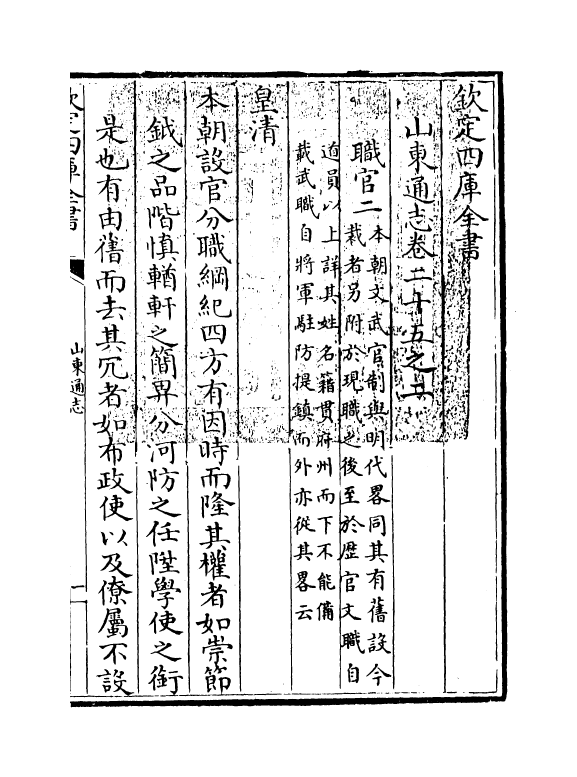 欽定四庫全書
山東通志卷二十五之上
職官二本朝文武官制與明代畧同其有舊設今
裁者另附於現職之後至於歴官文職自
道員以上詳其姓名籍貫府州而下不能備
載武職自將軍駐防提鎮而外亦從其畧云
皇清
本朝設官分職綱紀四方有因時而隆其權者如崇節
鉞之品階慎輶軒之簡畀分河防之任陞學使之銜
是也有由舊而去其冗者如布政使以及僚屬不設
欽定四庫全書
山東通志
一